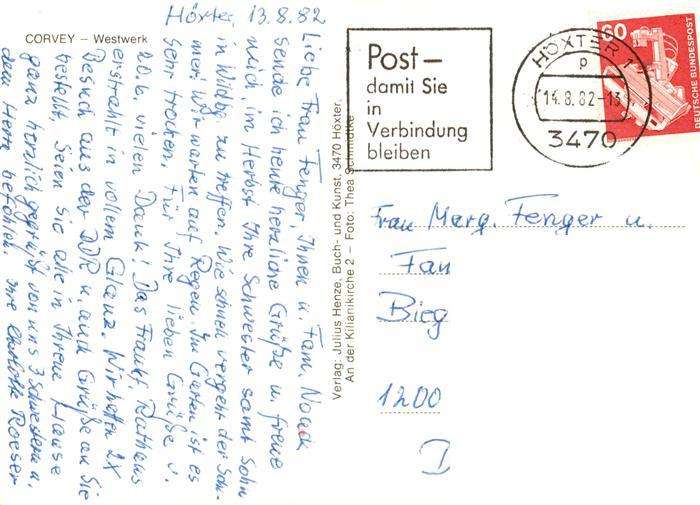 CORVEY – Westwerk
Höxter, 13.8.82
Liebe Frau Fenger, Ihnen u. Fam. Noack
sende ich heute herzliche Grüße u. freue
mich, im Herbst Ihre Schwester samt Sohn
in Wildbg. zu treffen. Wie schnell vergeht der Som-
mer. Wir warten auf Regen. Im Garten ist es
sehr trocken. Für Ihre lieben Grüße v.
20.6. vielen Dank! Das Frankf. Rathaus
erstrahlt in vollem Glanz. Wir hatten 2x
Besuch aus der DDR u. auch Grüße an Sie
bestellt. Seien Sie alle in Ihrem Hause
ganz herzlich gegrüßt von uns 3 Schwestern u.
dem Herrn befohlen. Ihre Charlotte Roeser
Verlag: Julius Henze, Buch- und Kunst, 3470 Höxter.
An der Kilianikirche 2 – Foto: Thea Schmidtke
Post –
damit Sie
in
Verbindung
bleiben
HÖXTER 1
p
14.8.82-13
3470
60
DEUTSCHE BUNDESPOST
Frau Marg. Fenger u.
Fam
Bieg
1200
I